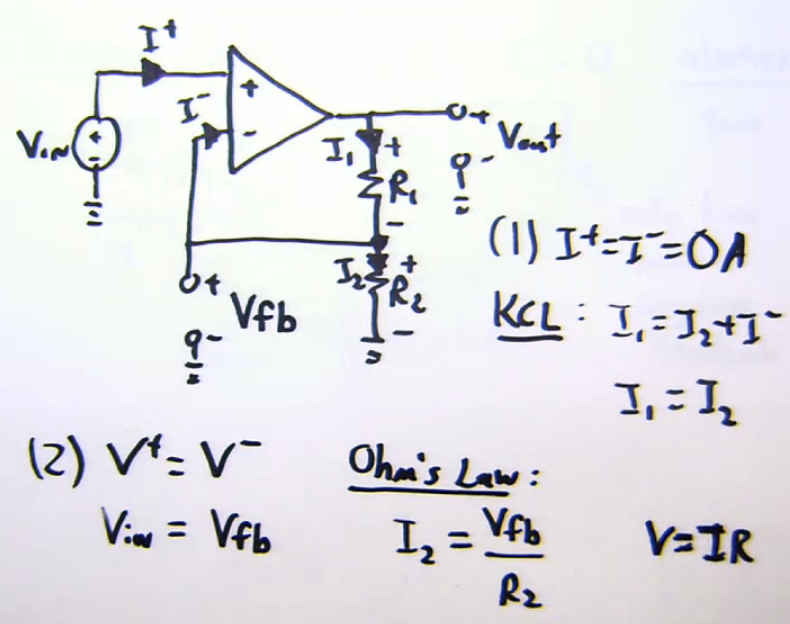 I⁺
I⁻
+
-
Vin
+
-
+ Vout
-
I₁ +
R₁
-
I₂ +
R₂
-
+ Vfb
-
(1) I⁺=I⁻=0A
KCL : I₁=I₂+I⁻
I₁ = I₂
(2) V⁺= V⁻
Vin = Vfb
Ohm's Law :
I₂ = Vfb
R₂
V=IR